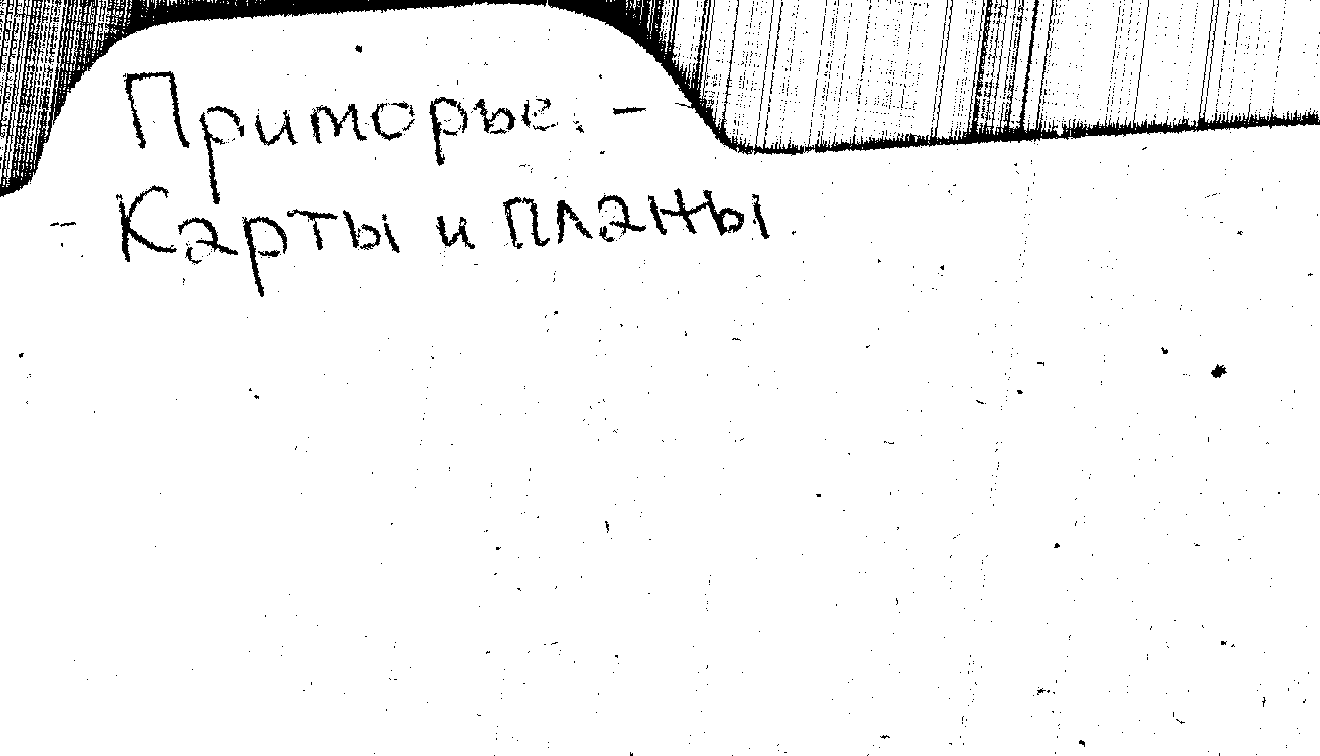 Приморье. -
- Карты и планы